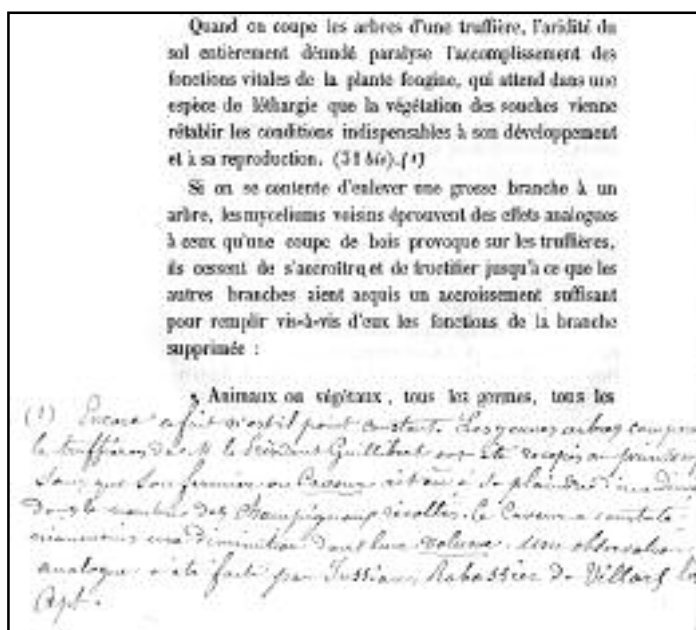 Quand on coupe les arbres d'une truffière, l'aridité du
sol entièrement dénudé paralyse l'accomplissement des
fonctions vitales de la plante fongine, qui attend dans une
espèce de léthargie que la végétation des souches vienne
rétablir les conditions indispensables à son développement
et à sa reproduction. (31 bis).(1)
Si on se contente d'enlever une grosse branche à un
arbre, les myceliums voisins éprouvent des effets analogues
à ceux qu'une coupe de bois provoque sur les truffières,
ils cessent de s'accroître et de fructifier jusqu'à ce que les
autres branches aient acquis un accroissement suffisant
pour remplir vis-à-vis d'eux les fonctions de la branche
supprimée :
Animaux ou végétaux, tous les germes, tous les
(1) Encore ce fait n'est il point constant. Les jeunes arbres
la truffière de M. le Président Guillibert ont été recepés au
sans que son fermier ou Caveur ait eu à se plaindre
dans le nombre des champignons récoltés. Le Caveur a constaté
néanmoins une diminution dans leur volume. Une observation
analogue a été faite par Jussian, Rabassier de Villars
Apt.